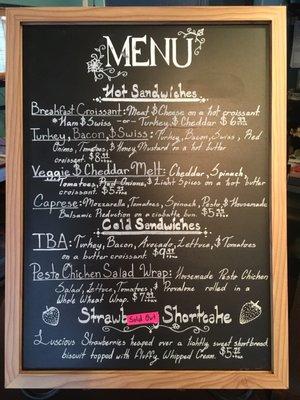 MENU
Hot Sandwiches
Breakfast Croissant: Meat & Cheese on a hot croissant
*Ham & Swiss -or- Turkey & Cheddar $6.99
Turkey, Bacon, & Swiss: Turkey, Bacon, Swiss, Red
Onions, Tomatoes, & Honey Mustard on a hot butter
croissant. $8.99
Veggie & Cheddar Melt: Cheddar, Spinach,
Tomatoes, Onions, & Light Spices on a hot butter
croissant. $5.99
Caprese: Mozzarella, Tomatoes, Spinach, Pesto & Housemade
Balsamic Reduction on a ciabatta bun. $5.99
Cold Sandwiches
TBA: Turkey, Bacon, Avocado, Lettuce, & Tomatoes
on a butter croissant. $9.99
Pesto Chicken Salad Wrap: Housemade Pesto Chicken
Salad, Lettuce, Tomatoes, & Provalone rolled in a
Whole Wheat Wrap. $7.99
Strawb Sold Out y Shortcake
Luscious Strawberries heaped over a lightly sweet shortbread
biscuit topped with Fluffy Whipped Cream. $5.99